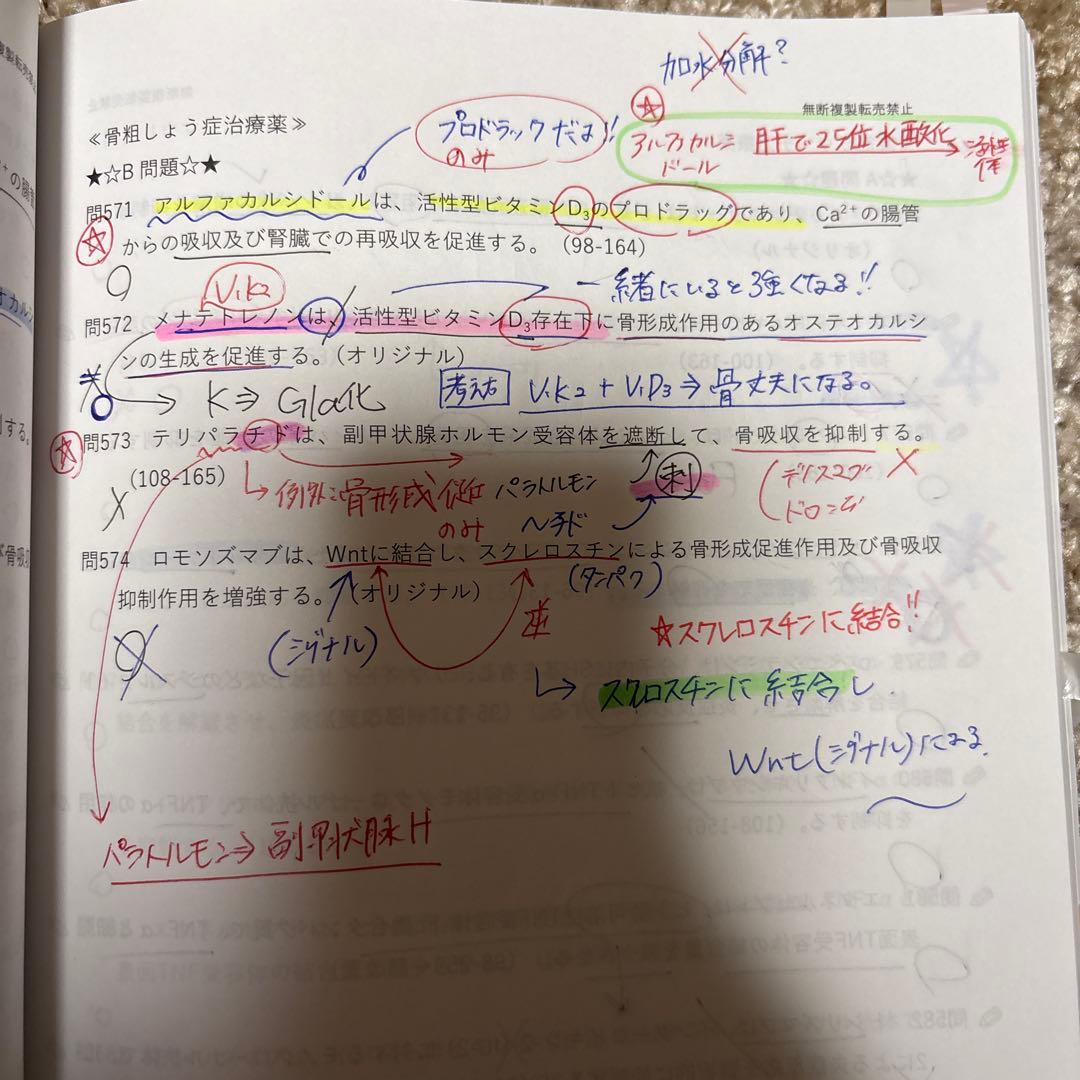 加水分解?
無断複製転売禁止
≪骨粗しょう症治療薬≫
プロドラックだよ!!
のみ
アルファカルシ
ドール
肝で25位水酸化→活性
体
★☆B 問題☆★
問571 アルファカルシドールは、活性型ビタミンD₃のプロドラッグであり、Ca²⁺の腸管
からの吸収及び腎臓での再吸収を促進する。(98-164)
V.K₂
一緒にいると強くなる!!
問572 メナテトレノンは、活性型ビタミンD₃存在下に骨形成作用のあるオステオカルシ
ンの生成を促進する。(オリジナル)
K⇒Gla化
考え方
V.K₂ + V.D₃ ⇒ 骨丈夫になる。
問573 テリパラチドは、副甲状腺ホルモン受容体を遮断して、骨吸収を抑制する。
(108-165)
例外:骨形成促進
のみ
パラトルモン
ペチド
刺
問574 ロモソズマブは、Wntに結合し、スクレロスチンによる骨形成促進作用及び骨吸収
抑制作用を増強する。(オリジナル)
(タンパク)
(シグナル)
逆
☆スクレロスチンに結合!!
スクロスチンに結合し
Wnt(シグナル)になる。
パラトルモン⇒副甲状腺H